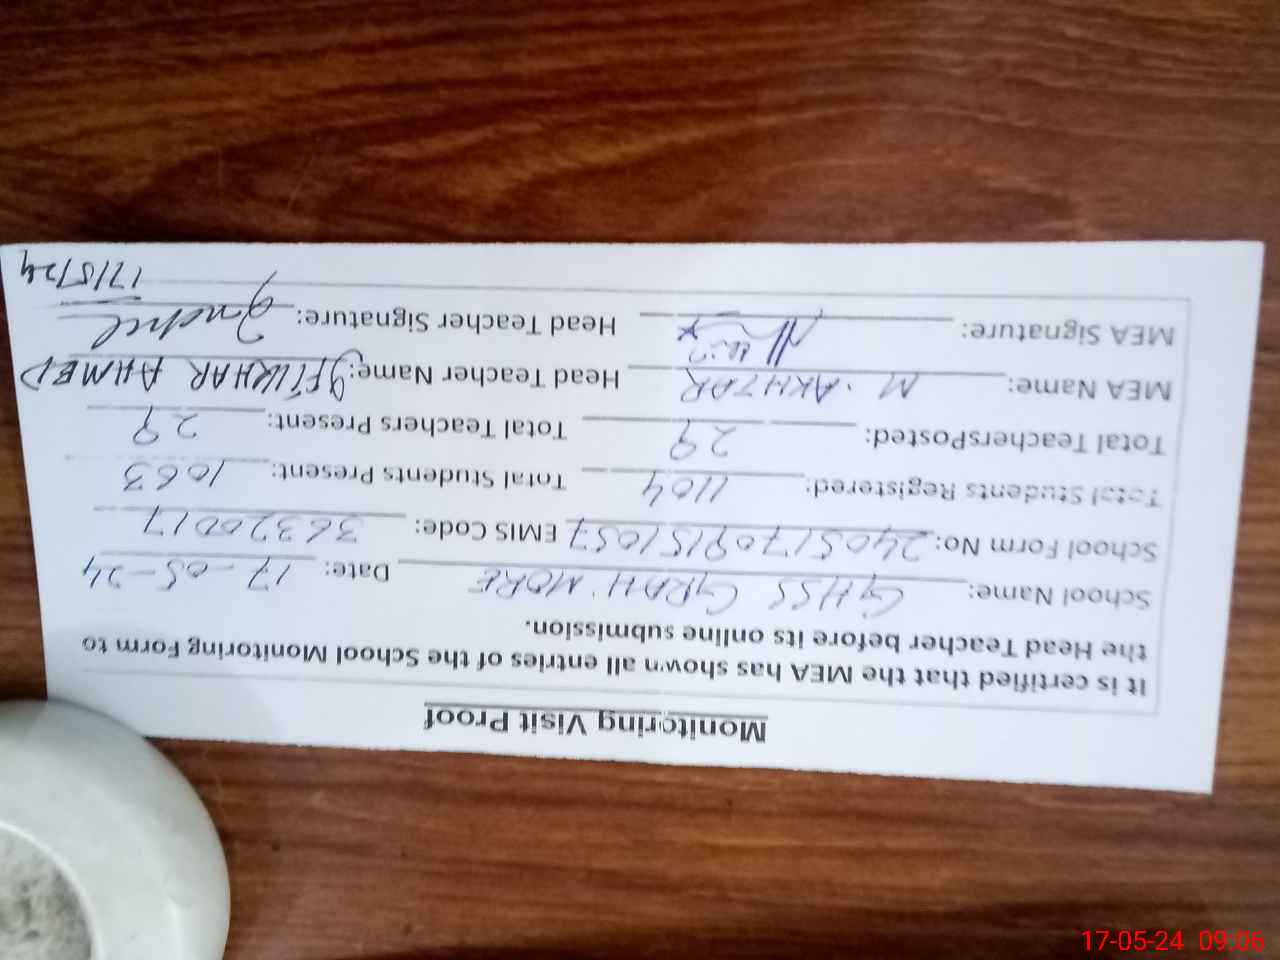 Monitoring Visit Proof
It is certified that the MEA has shown all entries of the School Monitoring Form to
the Head Teacher before its online submission.
School Name: GHSS GRAH MORE Date: 17-05-24
School Form No: 24051709151057 EMIS Code: 36320017
Total Students Registered: 1104 Total Students Present: 1063
Total TeachersPosted: 29 Total Teachers Present: 29
MEA Name: M. AKHTAR Head Teacher Name: IFTIKHAR AHMED
MEA Signature: Head Teacher Signature:
17/5/24
17-05-24 09:06